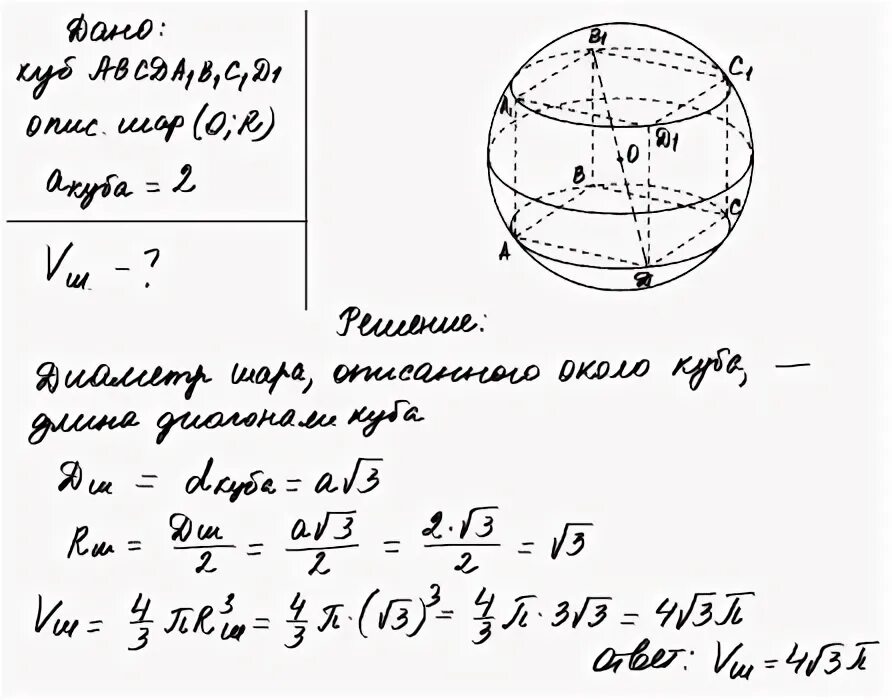 Дано:
куб ABCDA₁B₁C₁D₁
опис. шар (O; R)
a куба = 2
Vш. - ?
B₁
C₁
A₁
D₁
O
B
C
A
D
Решение:
Диаметр шара, описанного около куба, —
длина диагонали куба
Dш = dкуба = a√3
Rш = Dш/2 = a√3/2 = 2·√3/2 = √3
Vш = 4/3 πR³ш = 4/3 π·(√3)³ = 4/3 π·3√3 = 4√3π
ответ: Vш = 4√3π